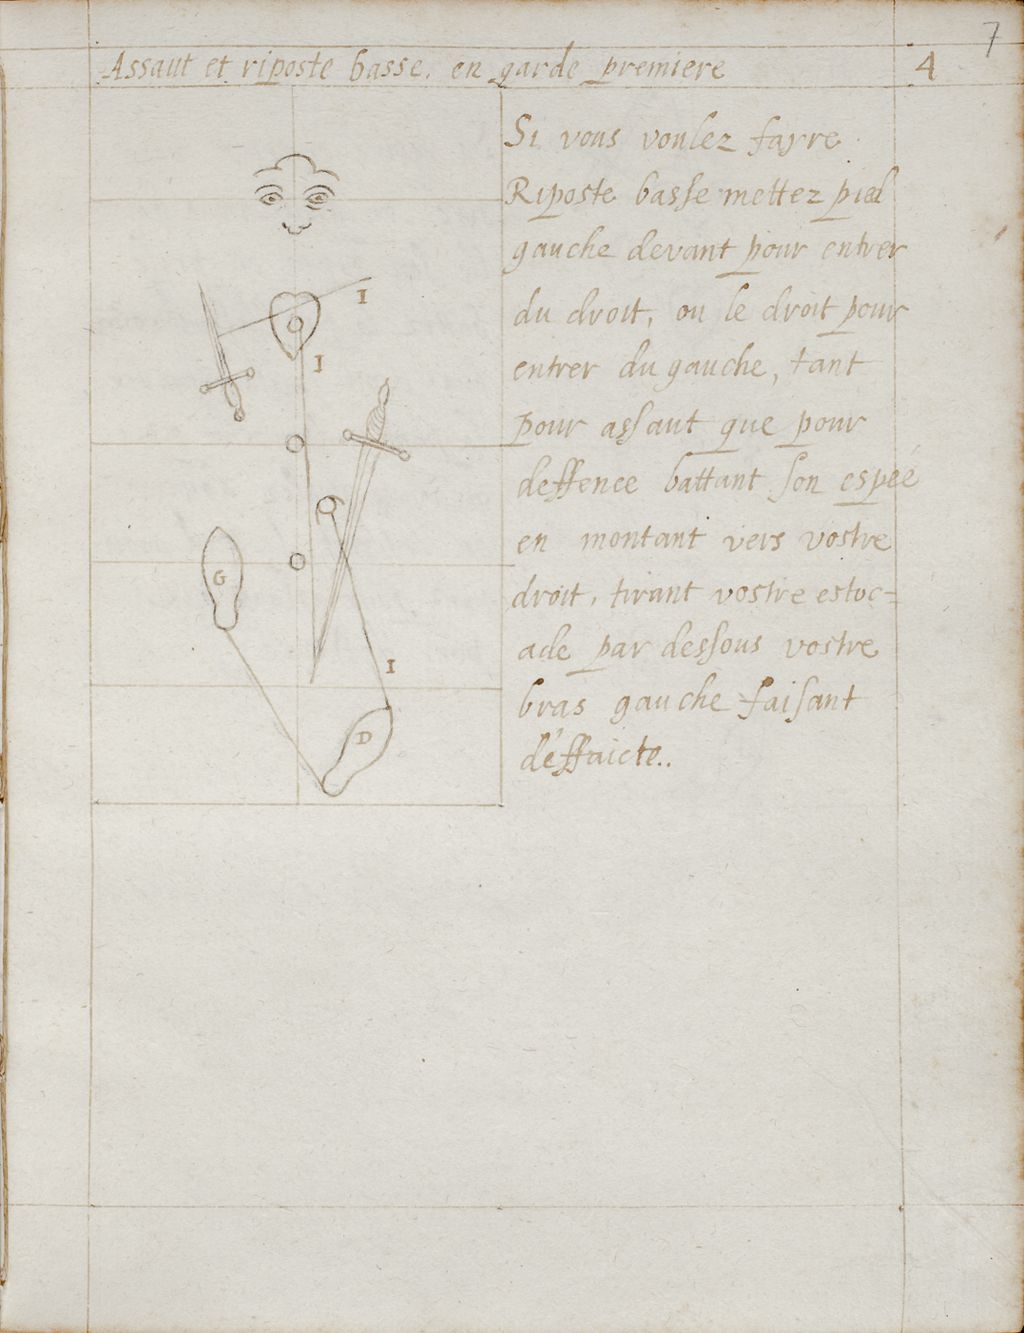 7
Assaut et riposte basse. en garde premiere 4
Si vous voulez fayre
Riposte basse mettez pied
gauche devant pour entrer
du droit, ou le droit pour
entrer du gauche, tant
pour assaut que pour
deffence battant son espeé
en montant vers vostre
droit, tirant vostre estoc-
ade par dessous vostre
bras gauche faisant
déffaicte..
I
I
G
I
D